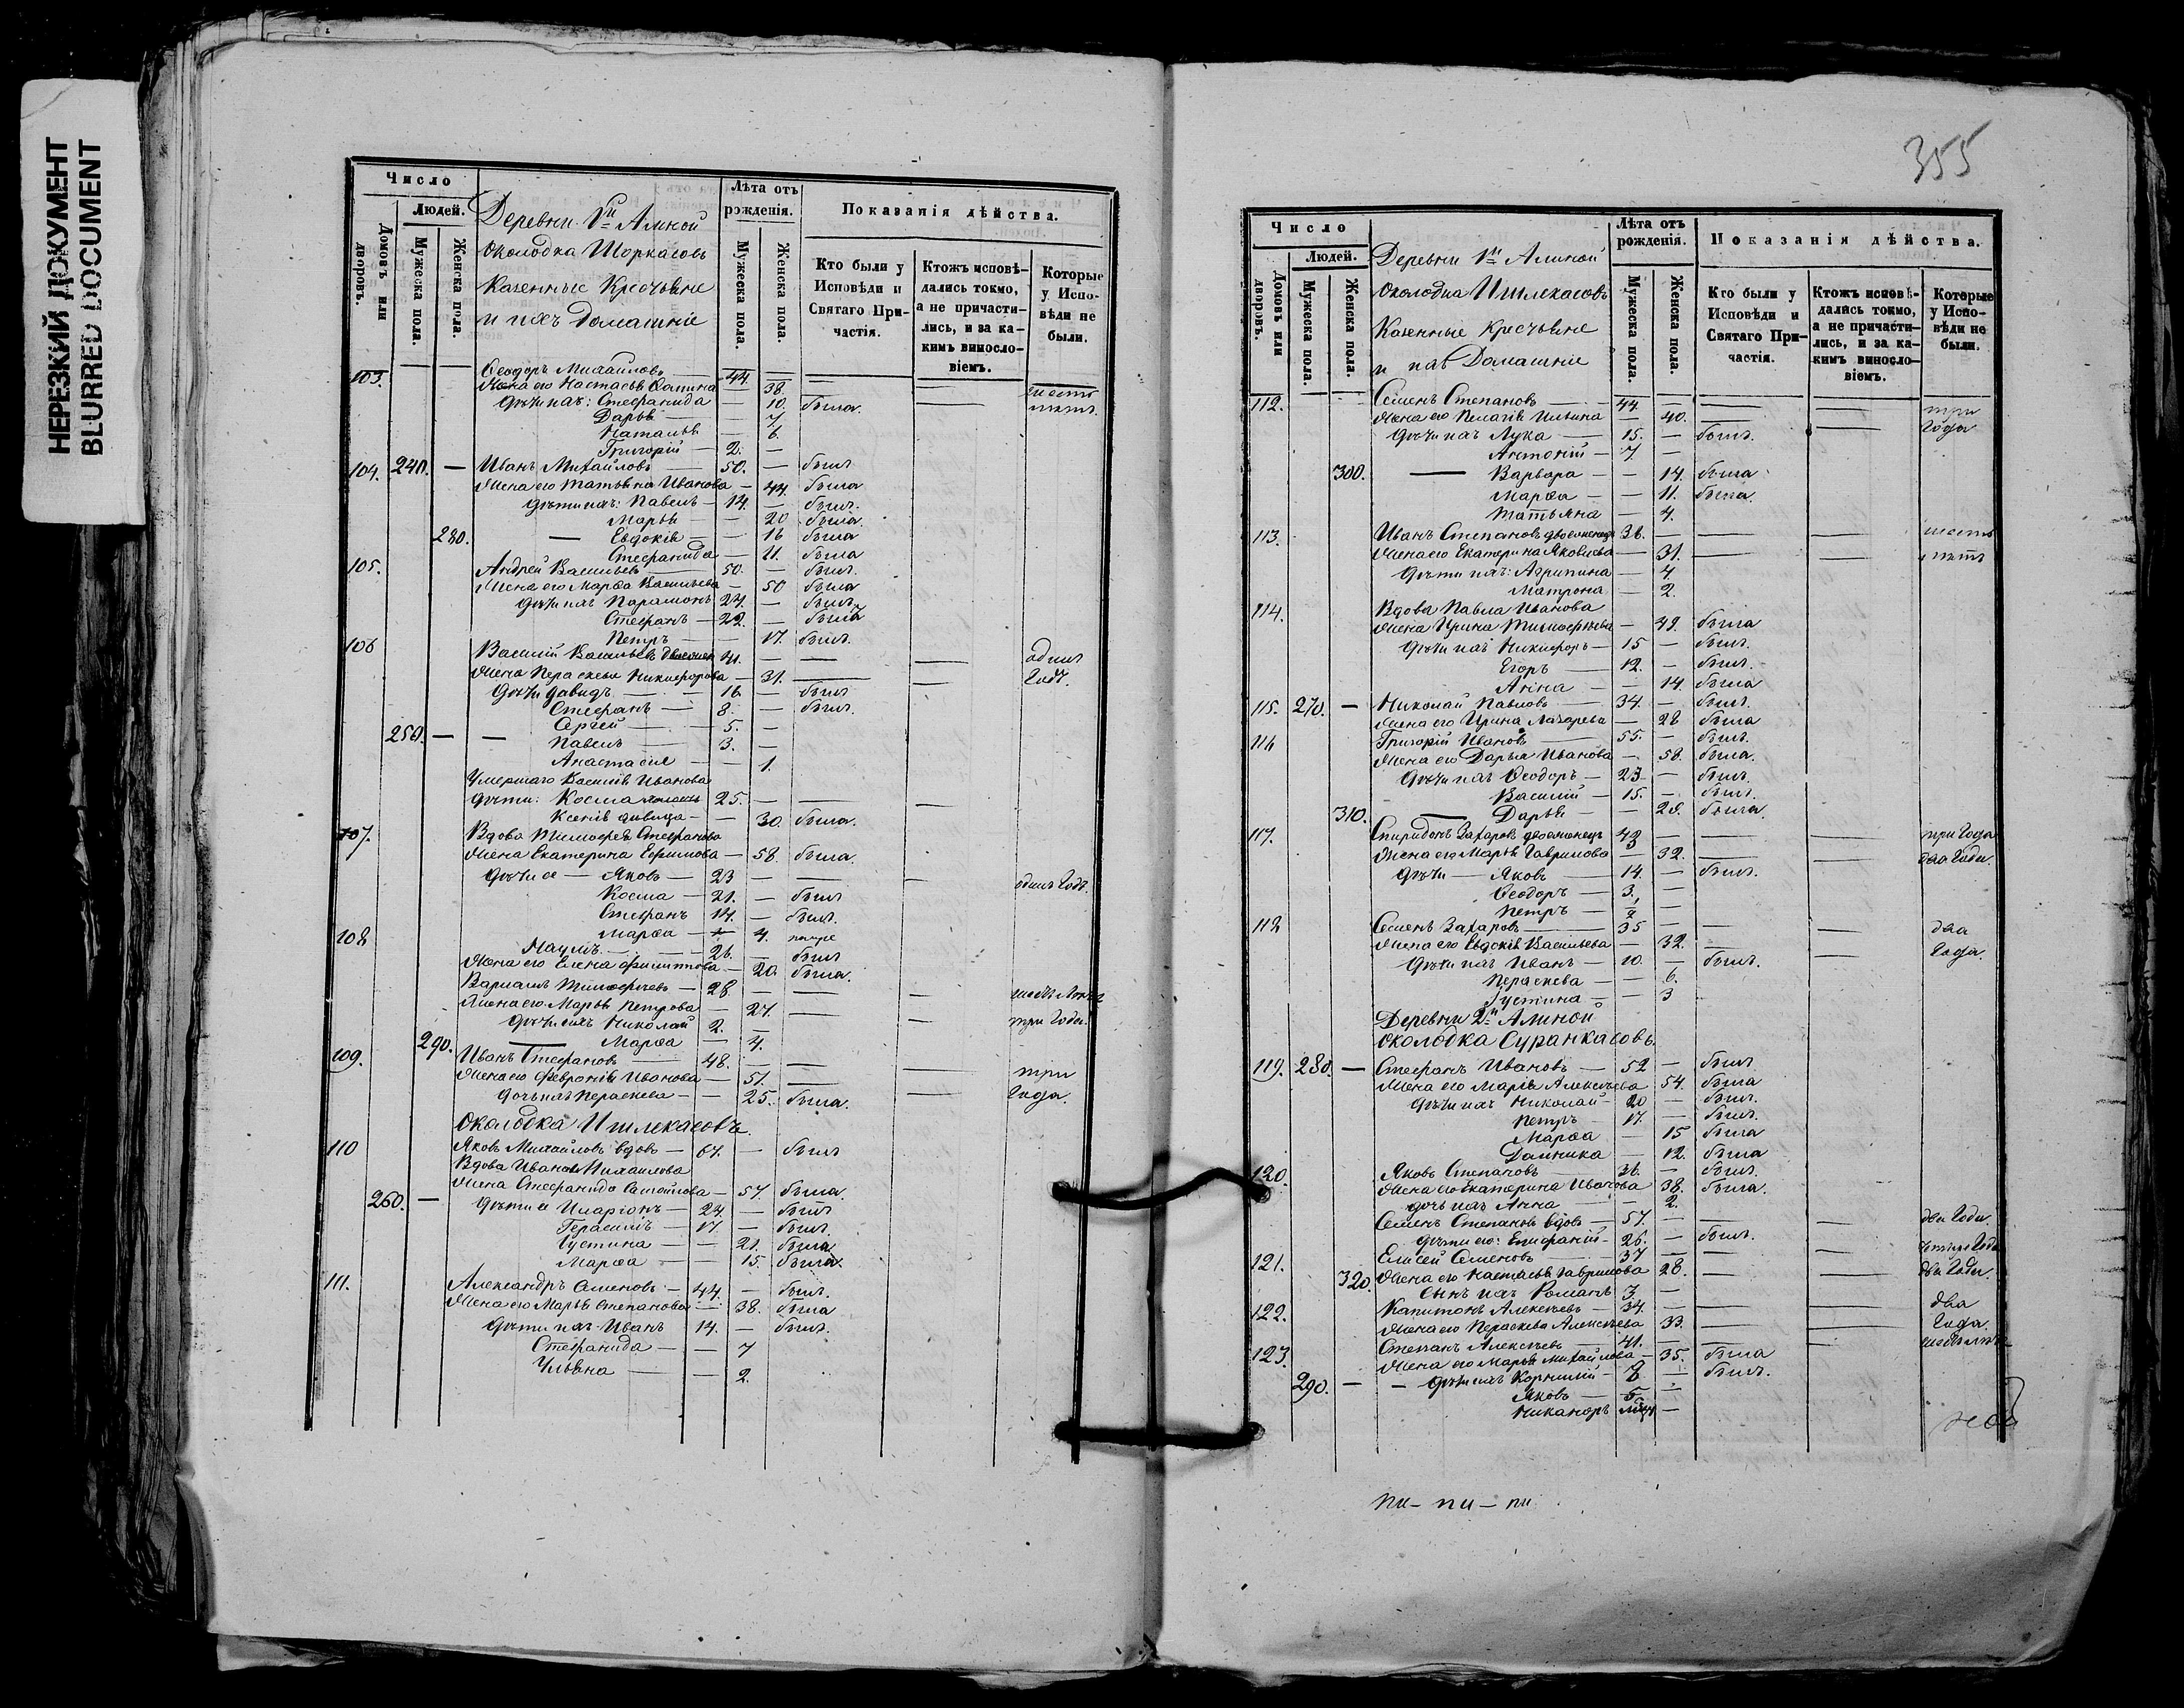 НЕРЕЗКИЙ ДОКУМЕНТ
BLURRED DOCUMENT
Число
Людей.
Домовъ или дворовъ.
Мужеска пола.
Женска пола.
Деревни 1й Алиной
околодка Шоркасовъ
Казенные Крестьяне
и ихъ Домашніе
Лѣта отъ рожденія.
Мужеска пола.
Женска пола.
Показанія дѣйства.
Кто были у Исповѣди и Святаго Причастія.
Ктожъ исповѣдались токмо, а не причастились, и за какимъ винословіемъ.
Которые у Исповѣди не были.
103. Ѳеодоръ Михайловъ — 44. — шесть
Жена его Настасья — 38. — лѣтъ
Дѣти ихъ: Стефанида — 10. была.
Дарья — 7.
Наталья — 6.
Григорій — 2. —
104. 240. — Иванъ Михайловъ — 50. — былъ
Жена его Татьяна Иванова — 44. была
Дѣти ихъ: Павелъ — 14. — былъ.
Марья — 20 была
280. — Евдокія — 16 была
Стефанида — 11. была
105. Андрей Васильевъ — 50. — былъ.
Жена его Марѳа Васильева — 50 была
Дѣти ихъ Парамонъ 24. — былъ
Стефанъ — 22. — былъ
Петръ — 17. былъ.
106 Василій Васильевъ 41. — одинъ
Жена Параскева Никифорова — 31. — годъ.
Дѣти Давидъ — 16. — былъ
Стефанъ — 8. — былъ.
Сергей — 5. —
250. — Павелъ — 3. —
Анастасія — 1.
Умершаго Василія Иванова
дѣти: Косма 25. —
Ксенія дѣвица — 30. была.
107. Вдова Тимофея Стефанова
Жена Екатерина Ефимова — 58. была.
Дѣти ея — Яковъ — 23 — одинъ годъ.
Косма — 21. — былъ
Стефанъ 14. — былъ.
Марѳа — 4.
108 Наумъ — 26. — былъ
Жена его Елена Филиппова — 20. была.
Варлаамъ Тимофеевъ — 28. —
Жена его Марья Петрова — 27. — три года.
Дѣти ихъ Николай 2. —
290. — Марѳа — 4.
109. Иванъ Стефановъ — 48. — три
Жена его Февронія Иванова — 51. — года.
Дочь ихъ Параскева — 25. была.
околодка Ишлекасовъ.
110 Яковъ Михайловъ вдовъ — 61. — былъ
Вдова Ивана Михайлова
Жена Стефанида Самойлова — 57. была.
260. — Дѣти ея Иларіонъ — 24. — былъ
Герасимъ — 17. — былъ.
Густина — 21. была
Марѳа — 15. была.
111. Александръ Семеновъ — 44. — былъ.
Жена его Марья Степанова — 38. была
Дѣти ихъ Иванъ 14. — былъ.
Стефанида — 7
Ульяна — 2.
355
Число
Людей.
Домовъ или дворовъ.
Мужеска пола.
Женска пола.
Деревни 1й Алиной
околодка Ишлекасовъ
Казенные крестьяне
и ихъ Домашніе
Лѣта отъ рожденія.
Мужеска пола.
Женска пола.
Показанія дѣйства.
Кто были у Исповѣди и Святаго Причастія.
Ктожъ исповѣдались токмо, а не причастились, и за какимъ винословіемъ.
Которые у Исповѣди не были.
112. Семенъ Степановъ — 44. — три
Жена его Пелагія Ильина — 40. — года
Дѣти ихъ Лука — 15. — былъ.
Антоній — 7. —
300. — Варвара — 14. была
Марѳа — 11. была.
Татьяна — 4.
113. Иванъ Степановъ двоеженецъ 36. — шесть
Жена его Екатерина Яковлева — 31. — лѣтъ
Дѣти ихъ: Агрипина — 4.
Матрона — 2.
114. Вдова Павла Иванова
Жена Ирина Тимофеева — 49. была
Дѣти ихъ Никифоръ — 15 — былъ.
Егоръ — 12. — былъ.
Анна — 14. была
115. 270. — Николай Павловъ — 34. — былъ.
Жена его Ирина Лазарева — 28 была
116 Григорій Ивановъ — 55. — былъ.
Жена его Дарья Иванова — 58. была.
Дѣти ихъ Ѳеодоръ — 23. — былъ.
Василій — 15. — былъ.
310. — Дарья — 28. была.
117. Спиридонъ Захаровъ двоеженецъ 43 — три года
Жена его Марья Гаврилова — 32. — два года.
Дѣти — Яковъ — 14. — былъ.
Ѳеодоръ — 3. —
Петръ — 1/2 —
118 Семенъ Захаровъ — 35 — два
Жена его Евдокія Васильева — 32. — года.
Дѣти ихъ Иванъ — 10. — былъ.
Параскева — 6.
Густина — 3
Деревни 2й Алиной
околодка Суранкасовъ.
119. 280. — Стефанъ Ивановъ — 52 — былъ
Жена его Марья Алексѣева 54. была
Дѣти ихъ Николай — 20 — былъ.
Петръ — 17. — былъ.
Марѳа — 15 была
Домника — 12. была
120. Яковъ Степановъ — 36. — былъ.
Жена его Екатерина Иванова 38. была.
дочь ихъ Анна — 2.
Семенъ Степановъ вдовъ — 57. — два года.
Дѣти его: Епифаній — 26. — былъ.
121. Елисей Семеновъ — 37 — четыре года
320. Жена его Настасья Гаврилова 28. — два года.
Сынъ ихъ Романъ 3. —
122. Капитонъ Алексѣевъ — 34. — два
Жена его Параскева Алексѣева 33. — года.
123. Степанъ Алексѣевъ — 41. —
Жена его Марья Михайлова — 35. была
290. — Дѣти ихъ Корнилій — былъ.
Яковъ — 5 —
Никаноръ —
пи – пи – пи